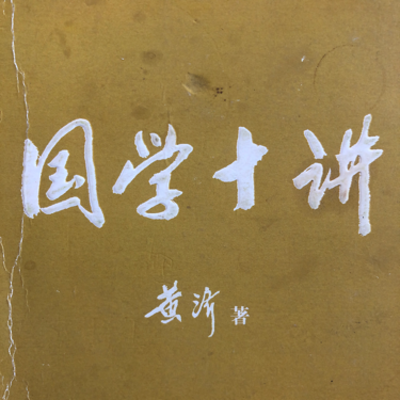 国学十讲
黄济著